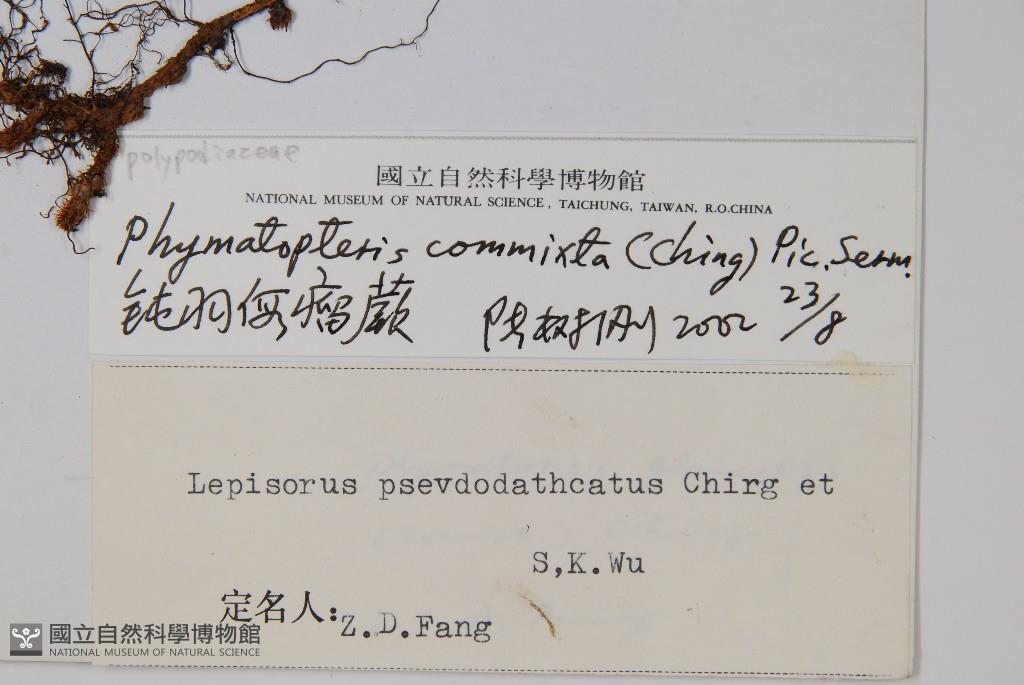 polypodiaceae
國立自然科學博物館
NATIONAL MUSEUM OF NATURAL SCIENCE, TAICHUNG, TAIWAN, R.O.CHINA
Phymatopteris commixta (Ching) Pic. Serm.
钝羽假瘤蕨 2002 23/8
Lepisorus psevdodathcatus Chirg et
S,K.Wu
定名人:Z.D.Fang
國立自然科學博物館
NATIONAL MUSEUM OF NATURAL SCIENCE